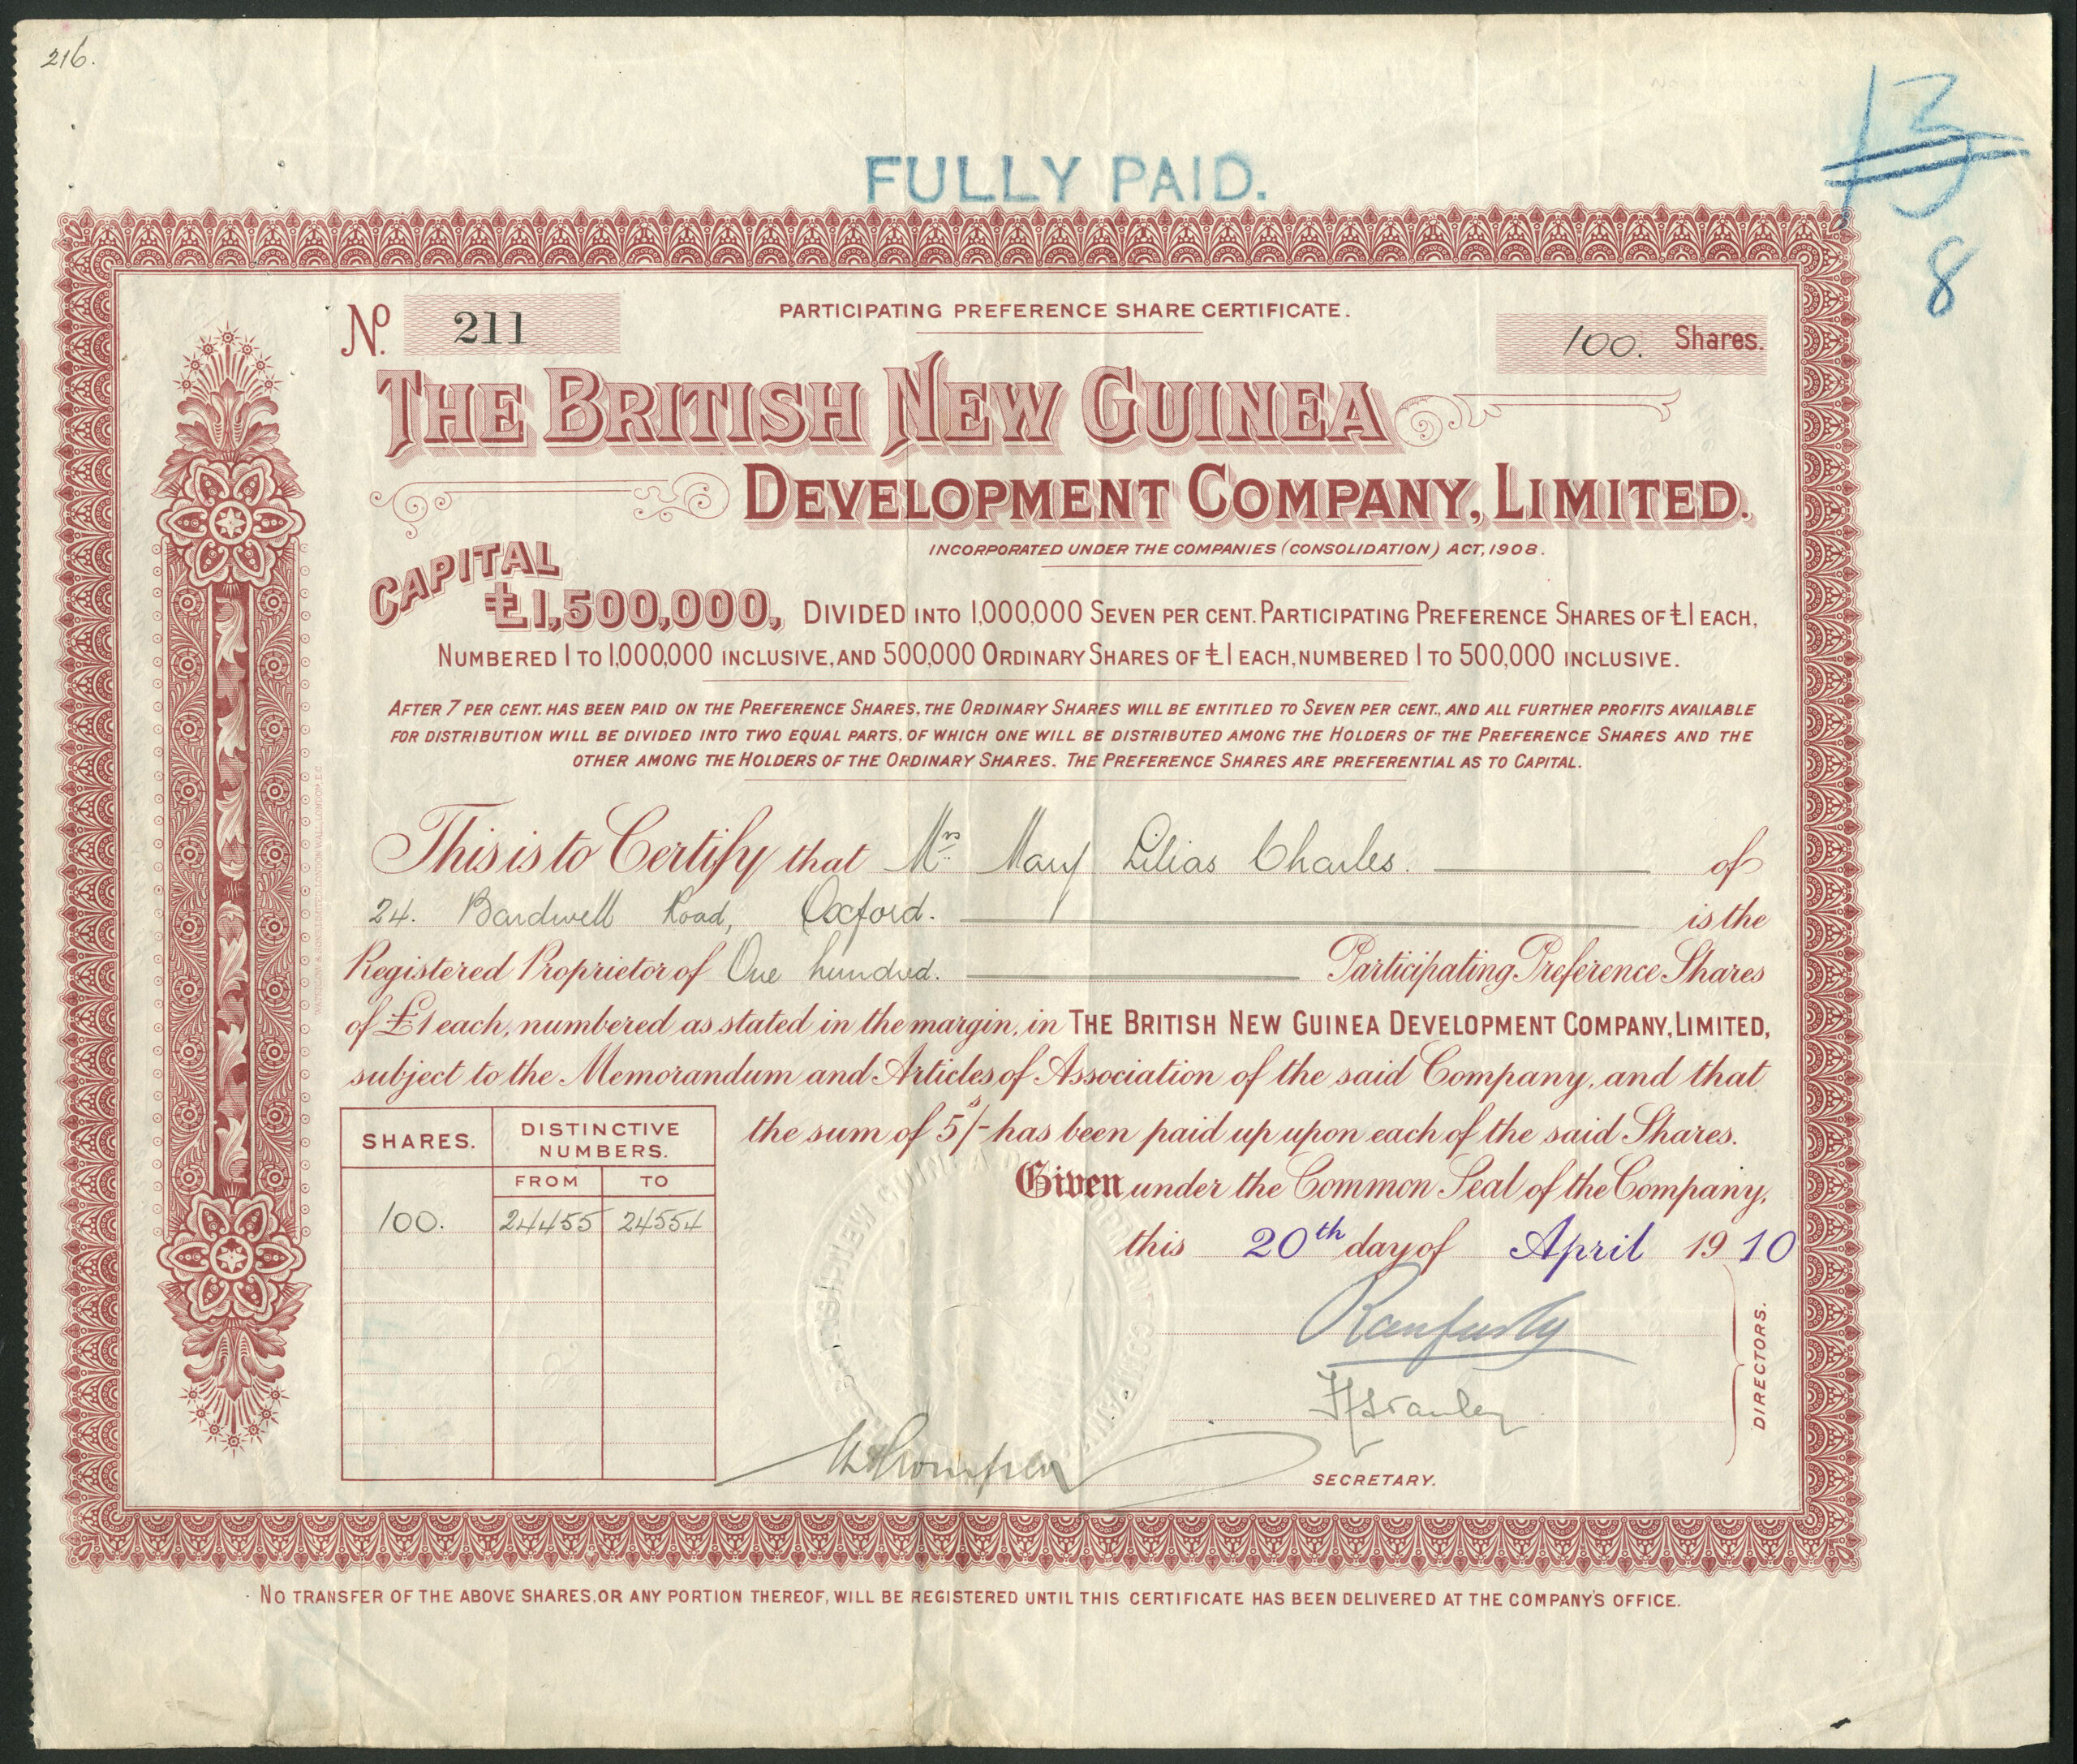 216.
13
FULLY PAID.
8
No. 211
PARTICIPATING PREFERENCE SHARE CERTIFICATE.
100. Shares.
THE BRITISH NEW GUINEA
DEVELOPMENT COMPANY, LIMITED.
INCORPORATED UNDER THE COMPANIES (CONSOLIDATION) ACT, 1908.
CAPITAL
£1,500,000, DIVIDED INTO 1,000,000 SEVEN PER CENT. PARTICIPATING PREFERENCE SHARES OF £1 EACH,
NUMBERED 1 TO 1,000,000 INCLUSIVE, AND 500,000 ORDINARY SHARES OF £1 EACH, NUMBERED 1 TO 500,000 INCLUSIVE.
AFTER 7 PER CENT. HAS BEEN PAID ON THE PREFERENCE SHARES, THE ORDINARY SHARES WILL BE ENTITLED TO SEVEN PER CENT., AND ALL FURTHER PROFITS AVAILABLE
FOR DISTRIBUTION WILL BE DIVIDED INTO TWO EQUAL PARTS, OF WHICH ONE WILL BE DISTRIBUTED AMONG THE HOLDERS OF THE PREFERENCE SHARES AND THE
OTHER AMONG THE HOLDERS OF THE ORDINARY SHARES. THE PREFERENCE SHARES ARE PREFERENTIAL AS TO CAPITAL.
This is to Certify that Mrs Mary Lilias Charles. of
24. Bardwell Road, Oxford. is the
Registered Proprietor of One hundred. Participating Preference Shares
of £1 each, numbered as stated in the margin, in THE BRITISH NEW GUINEA DEVELOPMENT COMPANY, LIMITED,
subject to the Memorandum and Articles of Association of the said Company, and that
the sum of 5s/- has been paid up upon each of the said Shares.
SHARES. DISTINCTIVE NUMBERS.
FROM TO
100. 24455 24554
Given under the Common Seal of the Company,
this 20th day of April 1910
Ranfurly
DIRECTORS.
SECRETARY.
WATERLOW & SONS LIMITED, LONDON WALL, LONDON, E.C.
NO TRANSFER OF THE ABOVE SHARES, OR ANY PORTION THEREOF, WILL BE REGISTERED UNTIL THIS CERTIFICATE HAS BEEN DELIVERED AT THE COMPANY'S OFFICE.